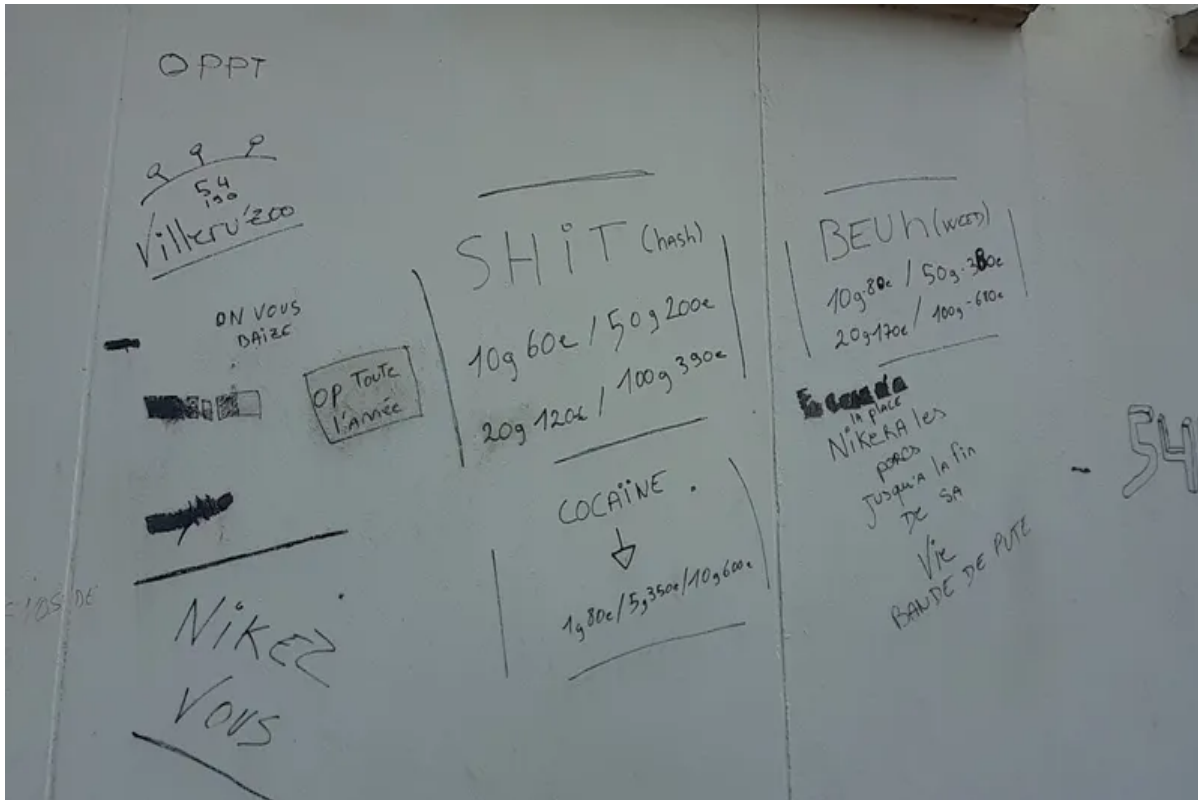 OPPT
54
190
Villeru'zoo
ON VOUS
BAIZE
OP TOUTE
l'ANNÉE
NiKEZ
VOUS
SHiT (hASh)
10g 60e / 50g 200e
20g 120e / 100g 390e
COCAÏNE .
1g 80e / 5g 350e / 10g 600e
BEUh (WEED)
10g-80e / 50g-380e
20g-170e / 100g-680e
la PLACE
NiKERA les
porcs
jusqu'A la fin
DE SA
Vie
BANDE DE PUTE
- 54